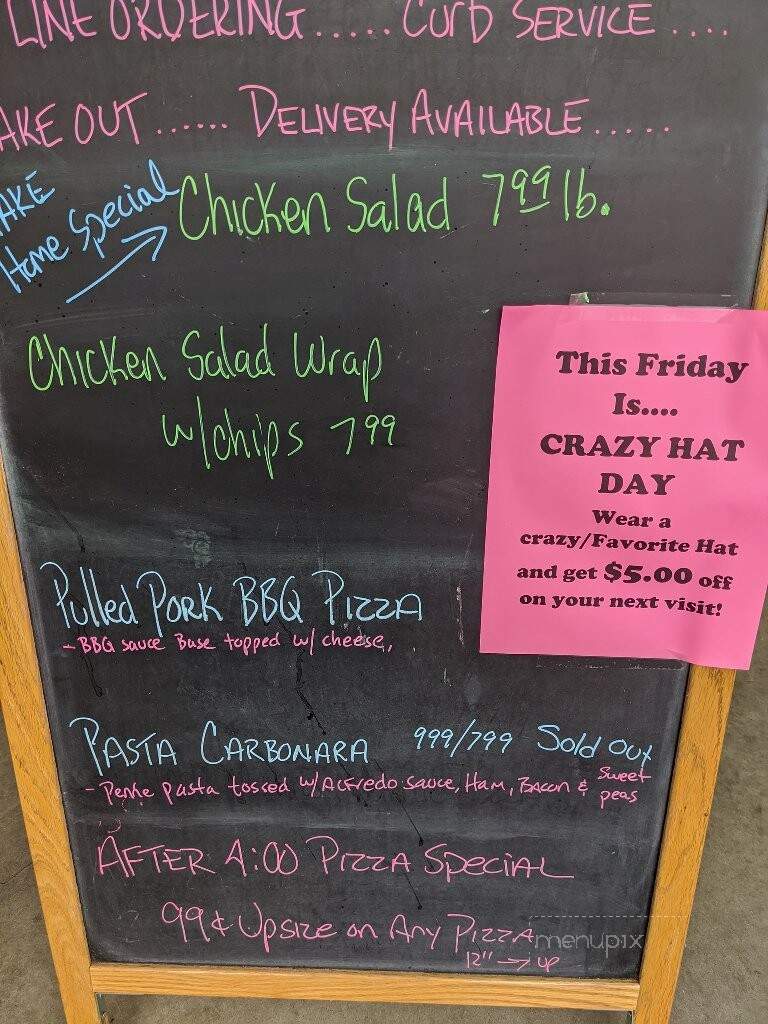 LINE ORDERING..... CURB SERVICE....
AKE OUT...... DELIVERY AVAILABLE.....
AKE
Home Special
Chicken Salad 7.99 lb.
Chicken Salad Wrap
w/chips 7.99
This Friday
Is....
CRAZY HAT
DAY
Wear a
crazy/Favorite Hat
and get $5.00 off
on your next visit!
Pulled Pork BBQ Pizza
- BBQ sauce Base topped w/ cheese,
PASTA CARBONARA 999/799 Sold Out
- Penne pasta tossed w/Alfredo sauce, Ham, Bacon & Sweet peas
AFTER 4:00 PIZZA SPECIAL
99¢ Upsize on Any Pizza
12" → up
menupix